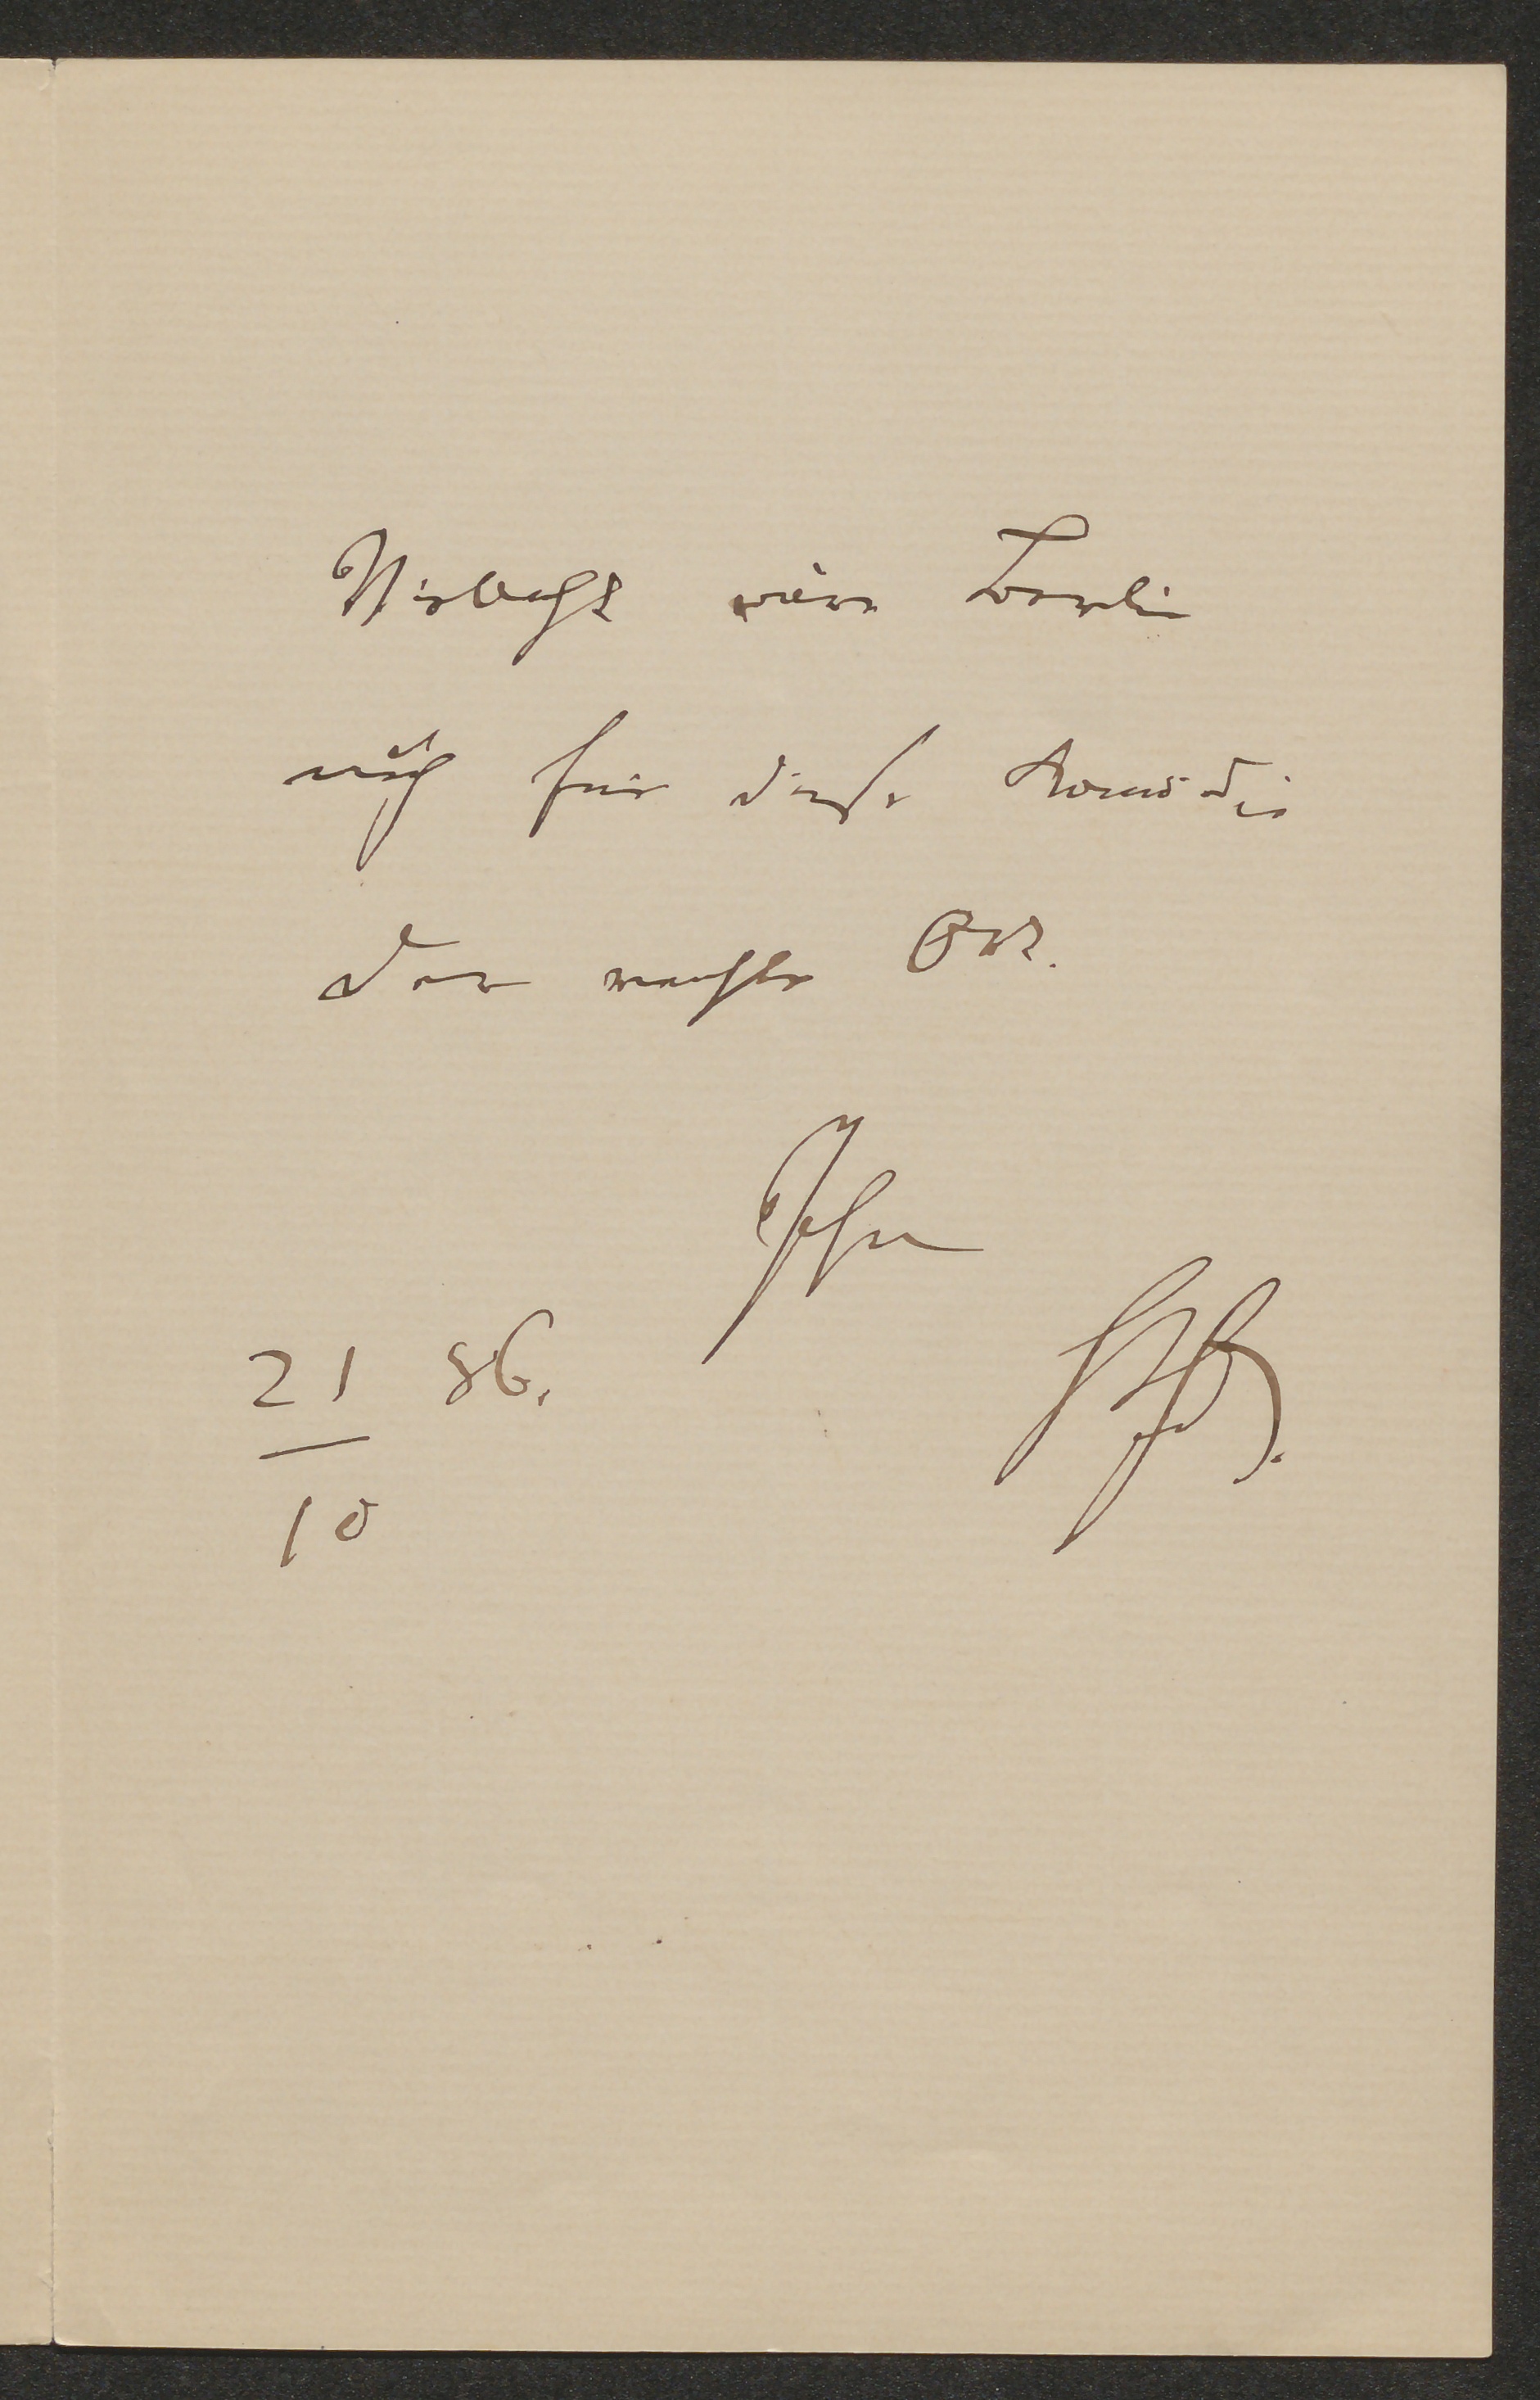 Vielleicht wäre Berlin
auch für diese Komödie
der rechte Ort.
Ihr
21 86.
10